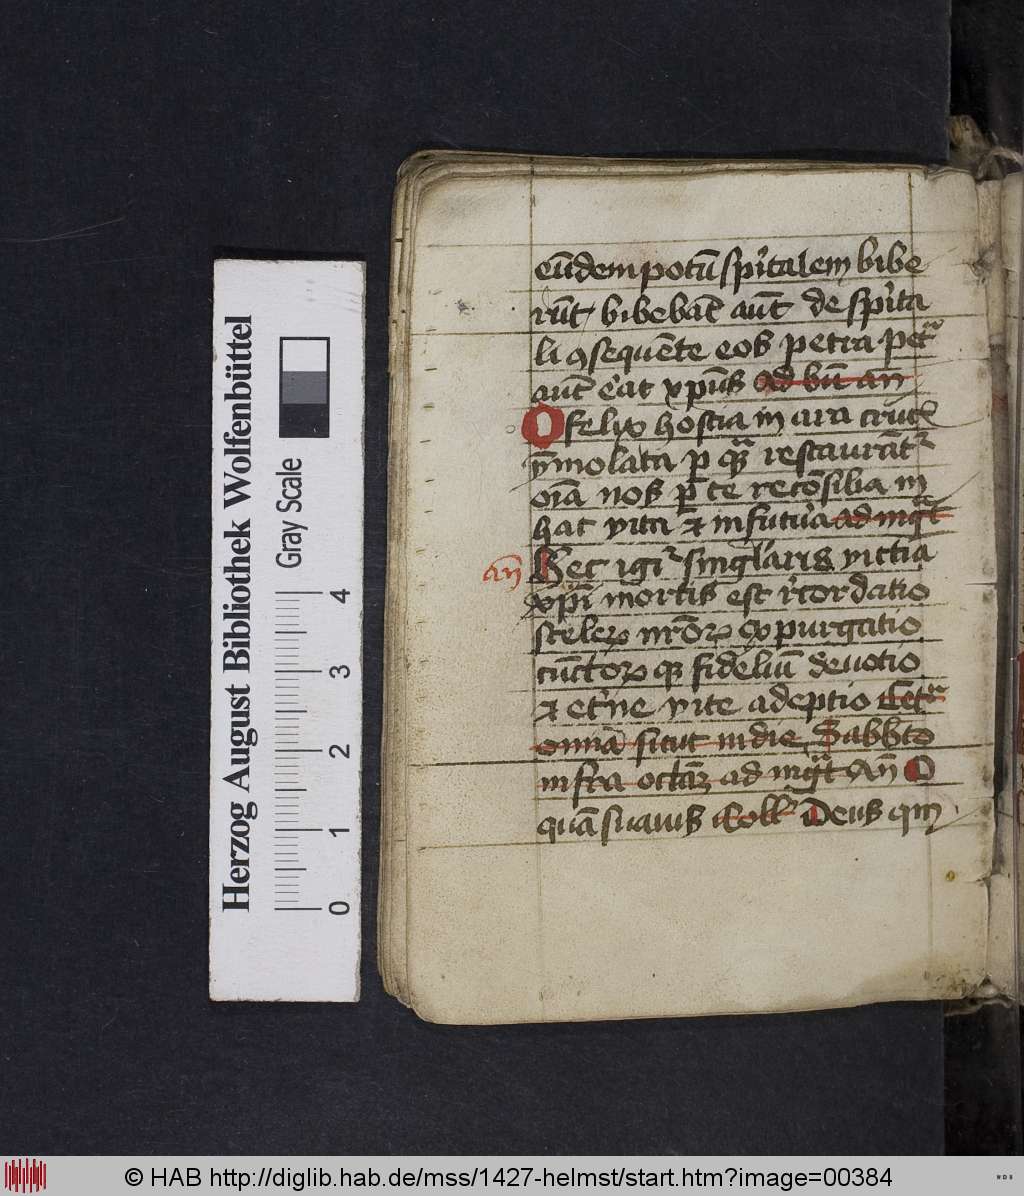 Herzog August Bibliothek Wolfenbüttel
Gray Scale
0 1 2 3 4
eūdem potū spi̾talem bibe
rūt bibebāt aūt de spi̾ta
li ꝯsequēte eos petra petᵃ
aūt eāt xp̄us ad bn̄ an̄
O felix hostia in ara cruc̾
ymolata ꝑ quā restaurātᵘʳ
oīa nos ꝑ te recōsilia in
hac vita ⁊ in futura ad mgᵗ
an̄
Hec igiᵗ singlaris victīa
xp̄i mortis est r̾cordatio
sceleꝝ nr̄oꝝ expurgatio
cūctoꝝ qꝫ fideliū deuotio
⁊ et̾ne vite adeptio Cetᵃ
om̄ia sicut in die Sabbto
infra octaꝫ ad mgᵗ An̄ O
quā suauis Coll̾ Deus qui
© HAB http://diglib.hab.de/mss/1427-helmst/start.htm?image=00384